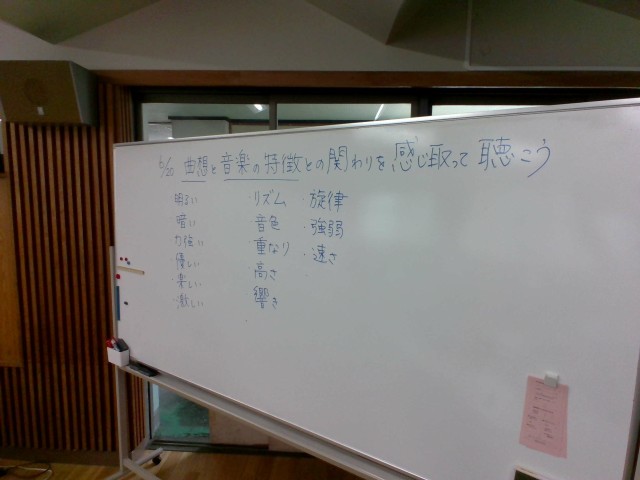 6/20 曲想と音楽の特徴との関わりを感じ取って聴こう
明るい
暗い
力強い
優しい
楽しい
激しい
リズム
音色
重なり
高さ
響き
・旋律
・強弱
・速さ